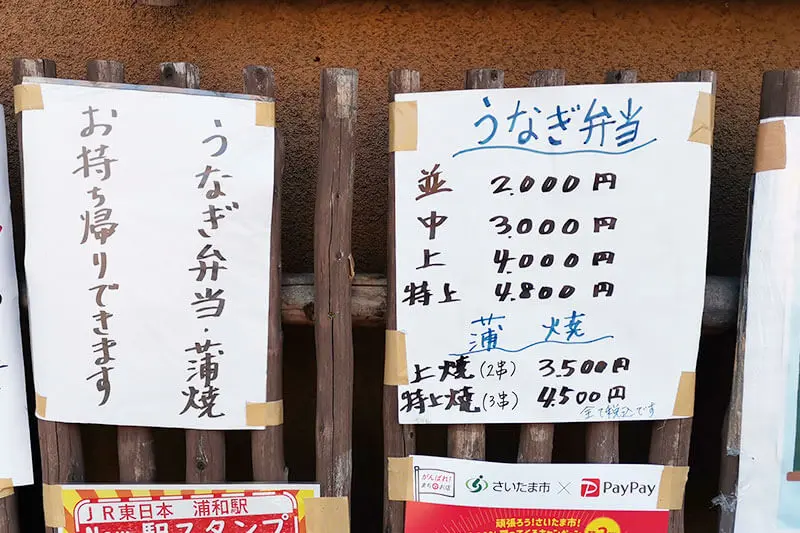 うなぎ弁当・蒲焼
お持ち帰りできます
うなぎ弁当
並 2.000円
中 3.000円
上 4.000円
特上 4.800円
蒲焼
上焼(2串) 3.500円
特上焼(3串) 4.500円
全て税込です
JR東日本 浦和駅
New駅スタンプ
がんばれ!
さいたま市 × PayPay
頑張ろう!さいたま市!